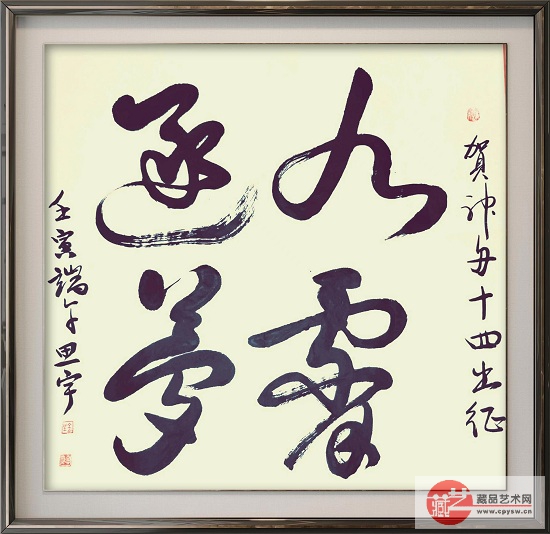 賀神舟十四出征
九霄
逐夢
壬寅端午思宇
藏艺
藏品艺术网
www.cpysw.cn